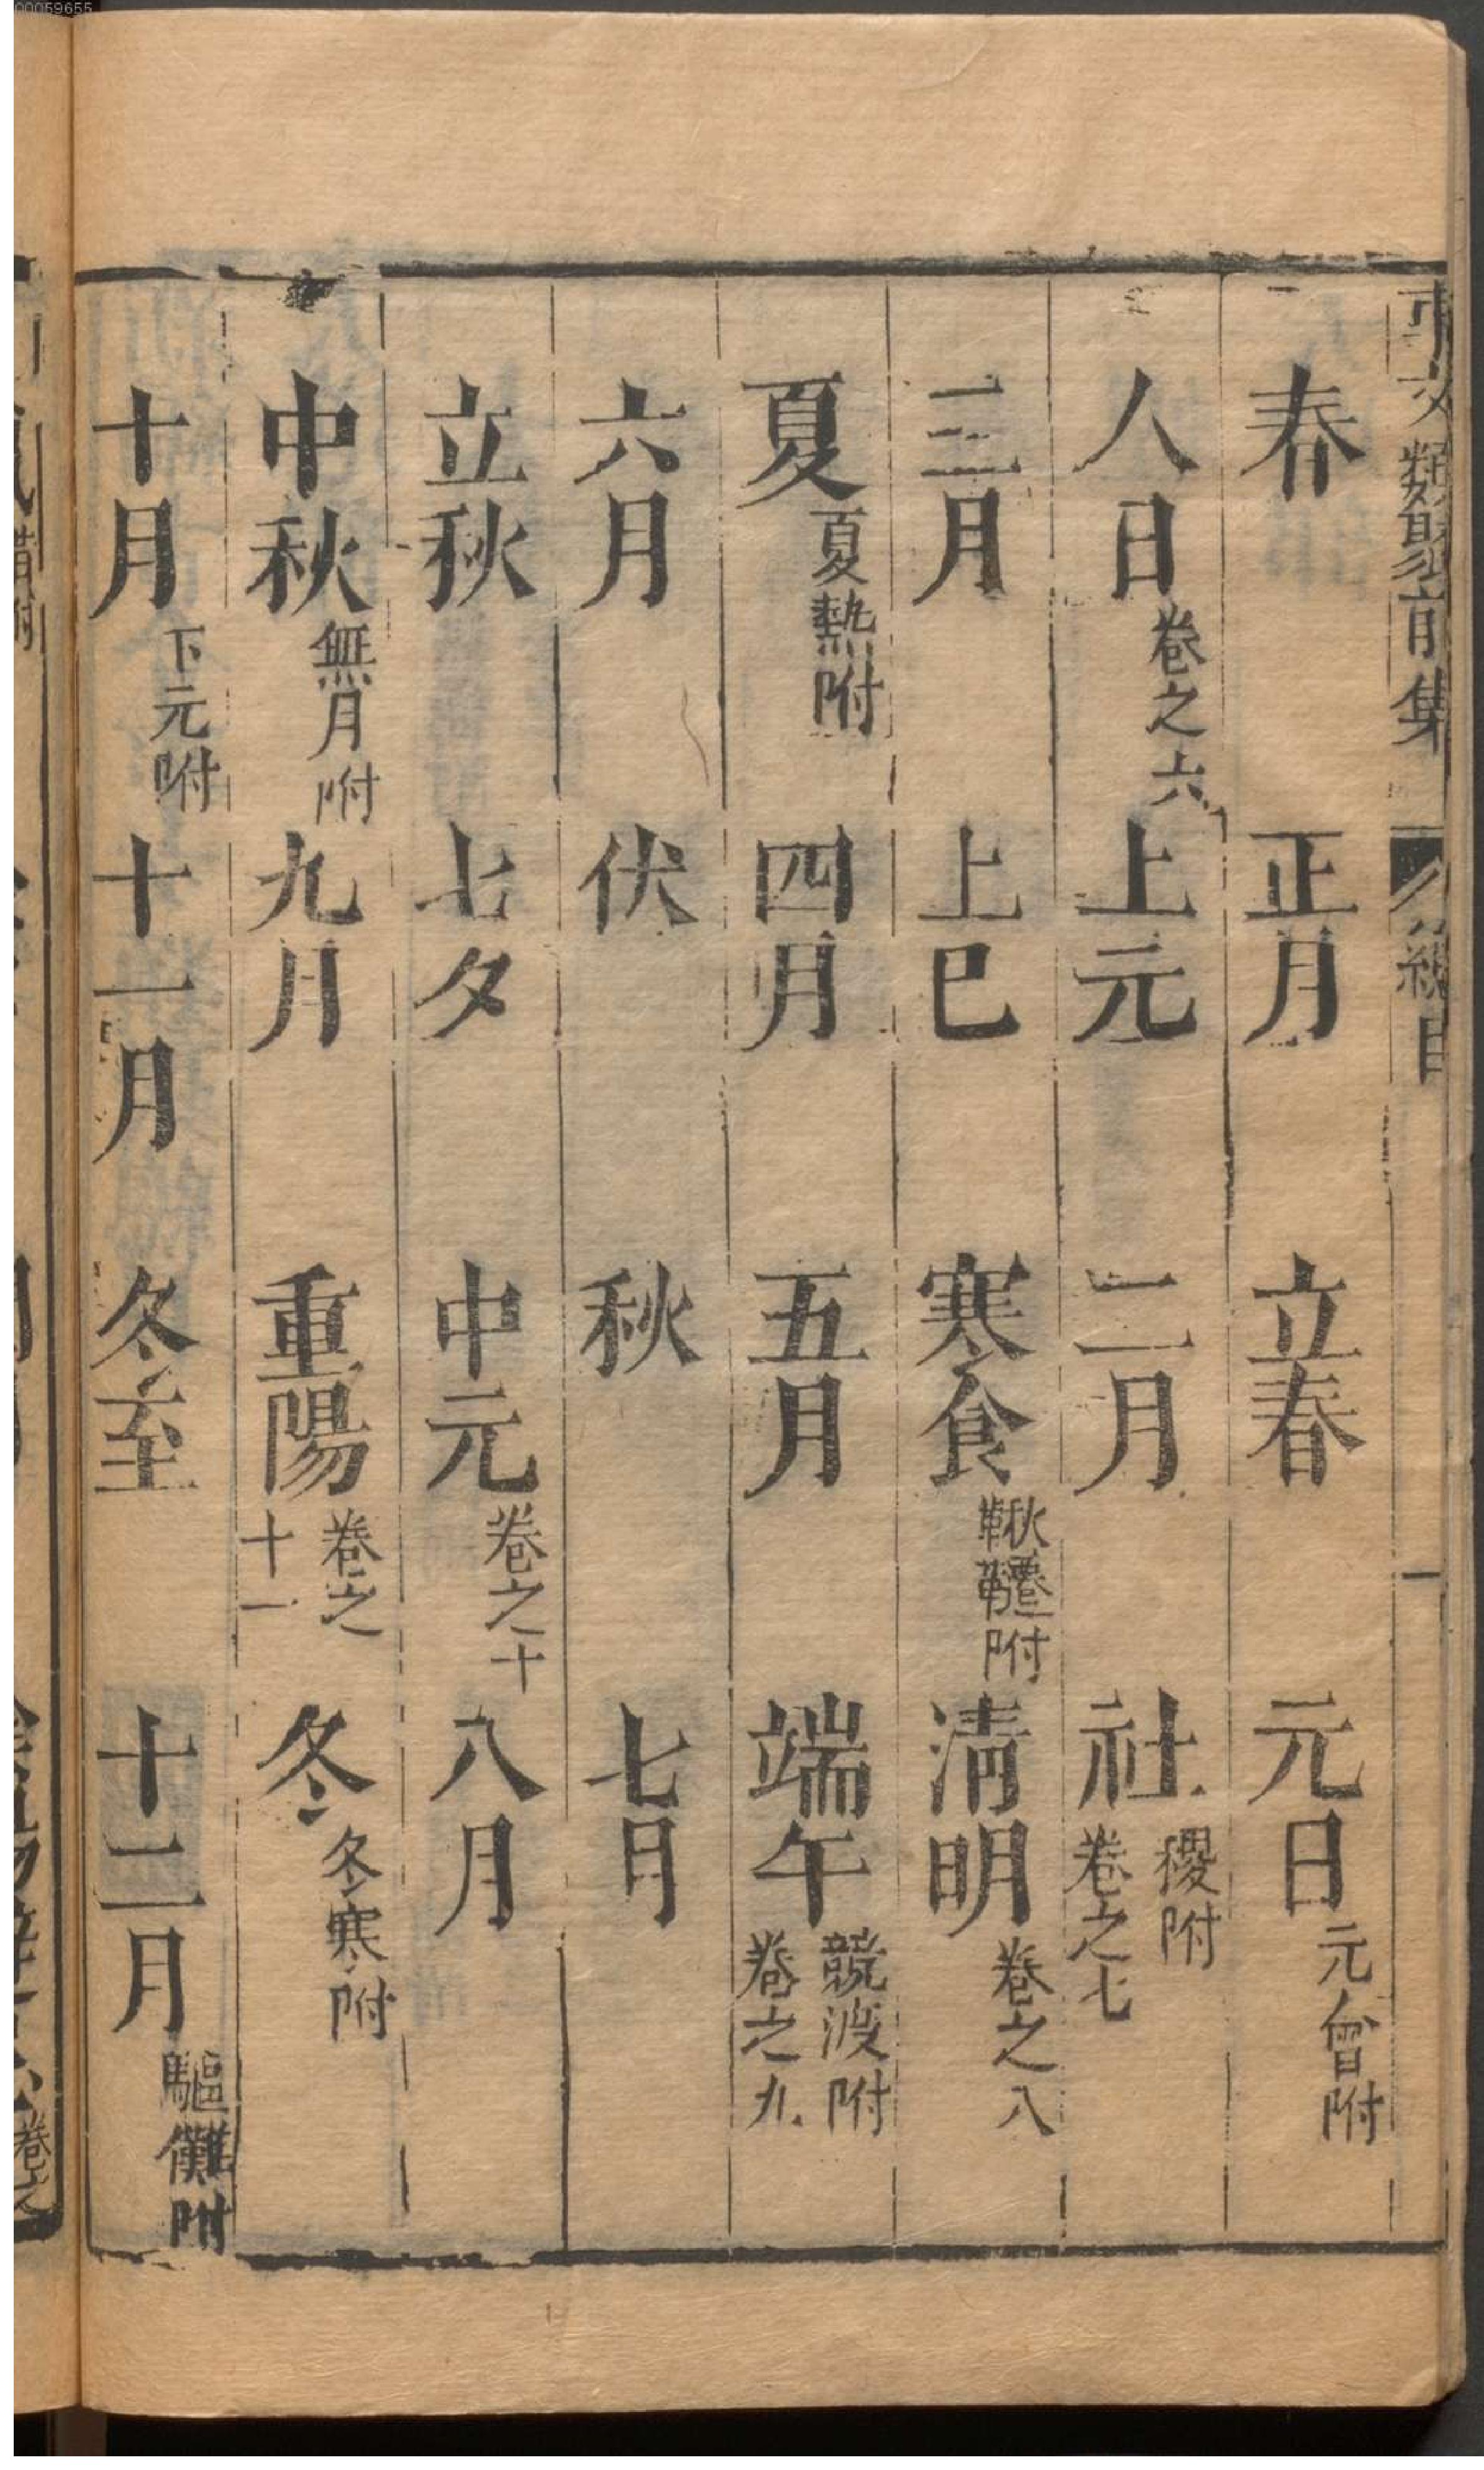 00059655
事文類聚前集 總目 一
春 正月 立春 元日 元會附
人日 卷之六 上元 二月 社 稷附 卷之七
三月 上巳 寒食 鞦韆附 清明 卷之八
夏 夏熱附 四月 五月 端午 競渡附 卷之九
六月 伏 秋 七月
立秋 七夕 中元 卷之十 八月
中秋 無月附 九月 重陽 卷之十一 冬 冬寒附
十月 下元附 十一月 冬至 十二月 驅儺附